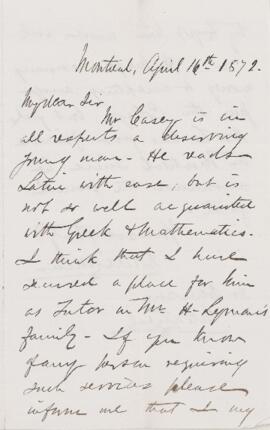 Montreal, April 16th 1872.
My dear Sir
Mr Casey is in
all respects a deserving
young man - He reads
Latin with ease; but is
not so well acquainted
with Greek & Mathematics.
I think that I have
secured a place for him
as Tutor in Mr H- Lyman's
family - If you know
of any person requiring
such services please
inform me that I may